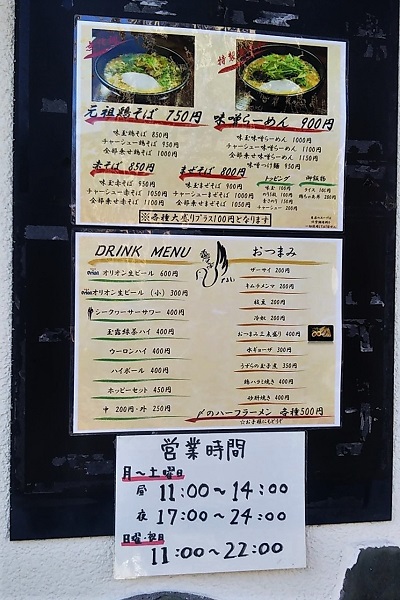 元祖鶏そば 750円
味玉鶏そば 850円
チャーシュー鶏そば 950円
全部乗せ鶏そば 1000円
味噌らーめん 900円
味玉味噌らーめん 1000円
チャーシュー味噌らーめん 1100円
全部乗せ味噌らーめん 1150円
味噌つけ麺 950円
赤そば 850円
味玉赤そば 950円
チャーシュー赤そば 1050円
全部乗せ赤そば 1100円
まぜそば 800円
味玉まぜそば 900円
チャーシューまぜそば 1000円
全部乗せまぜそば 1050円
トッピング
味玉 100円
のり5枚 100円
チャーシュー 200円
御飯物
ライス 100円
鶏ちゃ丼 200円
※各種大盛りプラス100円となります
DRINK MENU
オリオン生ビール 600円
オリオン生ビール (小) 300円
シークヮーサーサワー 400円
玉露緑茶ハイ 400円
ウーロンハイ 400円
ハイボール 400円
ホッピーセット 450円
中 200円・外 250円
おつまみ
ザーサイ 200円
キムチメンマ 200円
枝豆 200円
冷奴 200円
おつまみ三点盛り 400円
水ギョーザ 300円
うずらの玉子煮 350円
鶏ハラミ焼き 400円
砂肝焼き 400円
〆のハーフラーメン 各種500円
☆お子様にもどうぞ
営業時間
月～土曜日
昼 11:00～14:00
夜 17:00～24:00
日曜・祝日
11:00～22:00